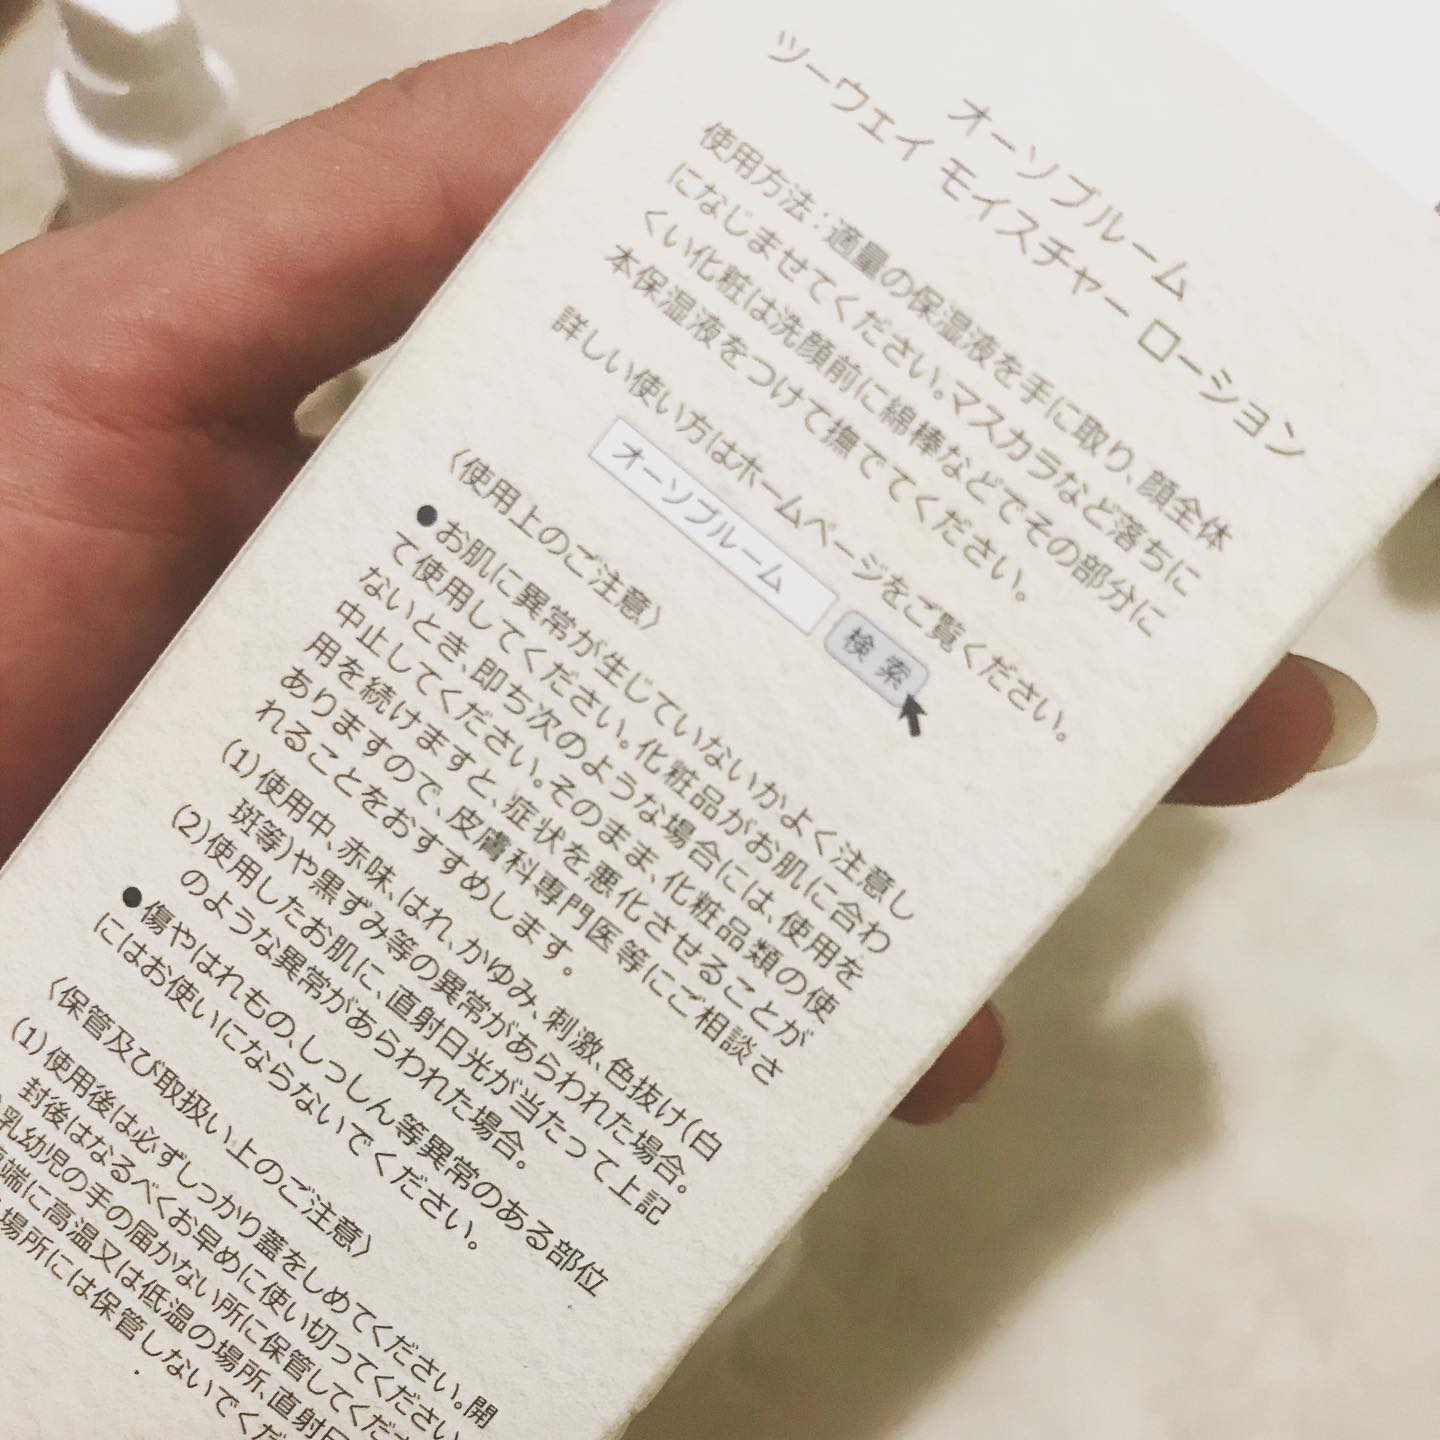 オーソブルーム
ツーウェイ モイスチャー ローション
使用方法：適量の保湿液を手に取り、顔全体
になじませてください。マスカラなど落ちに
くい化粧は洗顔前に綿棒などでその部分に
本保湿液をつけて撫でてください。
詳しい使い方はホームページをご覧ください。
オーソブルーム 検索
〈使用上のご注意〉
●お肌に異常が生じていないかよく注意し
て使用してください。化粧品がお肌に合わ
ないとき、即ち次のような場合には、使用を
中止してください。そのまま、化粧品類の使
用を続けますと、症状を悪化させることが
ありますので、皮膚科専門医等にご相談さ
れることをおすすめします。
(1)使用中、赤味、はれ、かゆみ、刺激、色抜け(白
斑等)や黒ずみ等の異常があらわれた場合。
(2)使用したお肌に、直射日光が当たって上記
のような異常があらわれた場合。
●傷やはれもの、しっしん等異常のある部位
にはお使いにならないでください。
〈保管及び取扱い上のご注意〉
(1)使用後は必ずしっかり蓋をしめてください。開
封後はなるべくお早めに使い切ってください
乳幼児の手の届かない所に保管してくださ
端に高温又は低温の場所、直射日
場所には保管しないでくだ